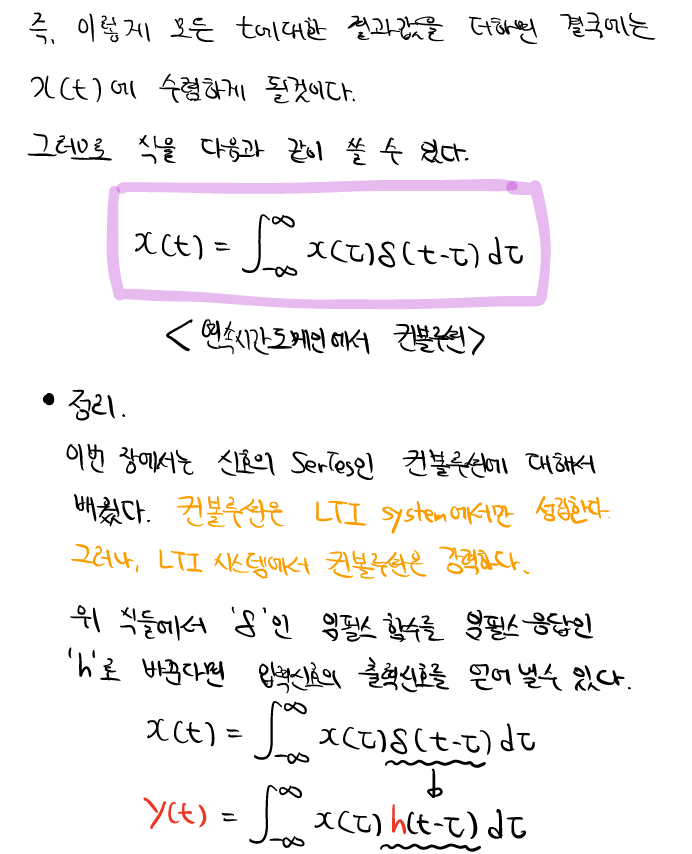 즉, 이렇게 모든 t에대한 결과값을 더하면 결국에는
x(t)에 수렴하게 될것이다.
그러므로 식을 다음과 같이 쓸 수 있다.
x(t) = ∫_{-∞}^{∞} x(τ)δ(t-τ) dτ
<연속시간도메인에서 컨볼루션>
• 정리.
이번 장에서는 신호의 Series인 컨볼루션에 대해서
배웠다. 컨볼루션은 LTI system에서만 성립한다.
그러나, LTI 시스템에서 컨볼루션은 강력하다.
위 식들에서 'δ'인 임펄스 함수를 임펄스 응답인
'h'로 바꾼다면 입력신호의 출력신호를 얻어 낼수 있다.
x(t) = ∫_{-∞}^{∞} x(τ)δ(t-τ) dτ
↓
y(t) = ∫_{-∞}^{∞} x(τ)h(t-τ) dτ